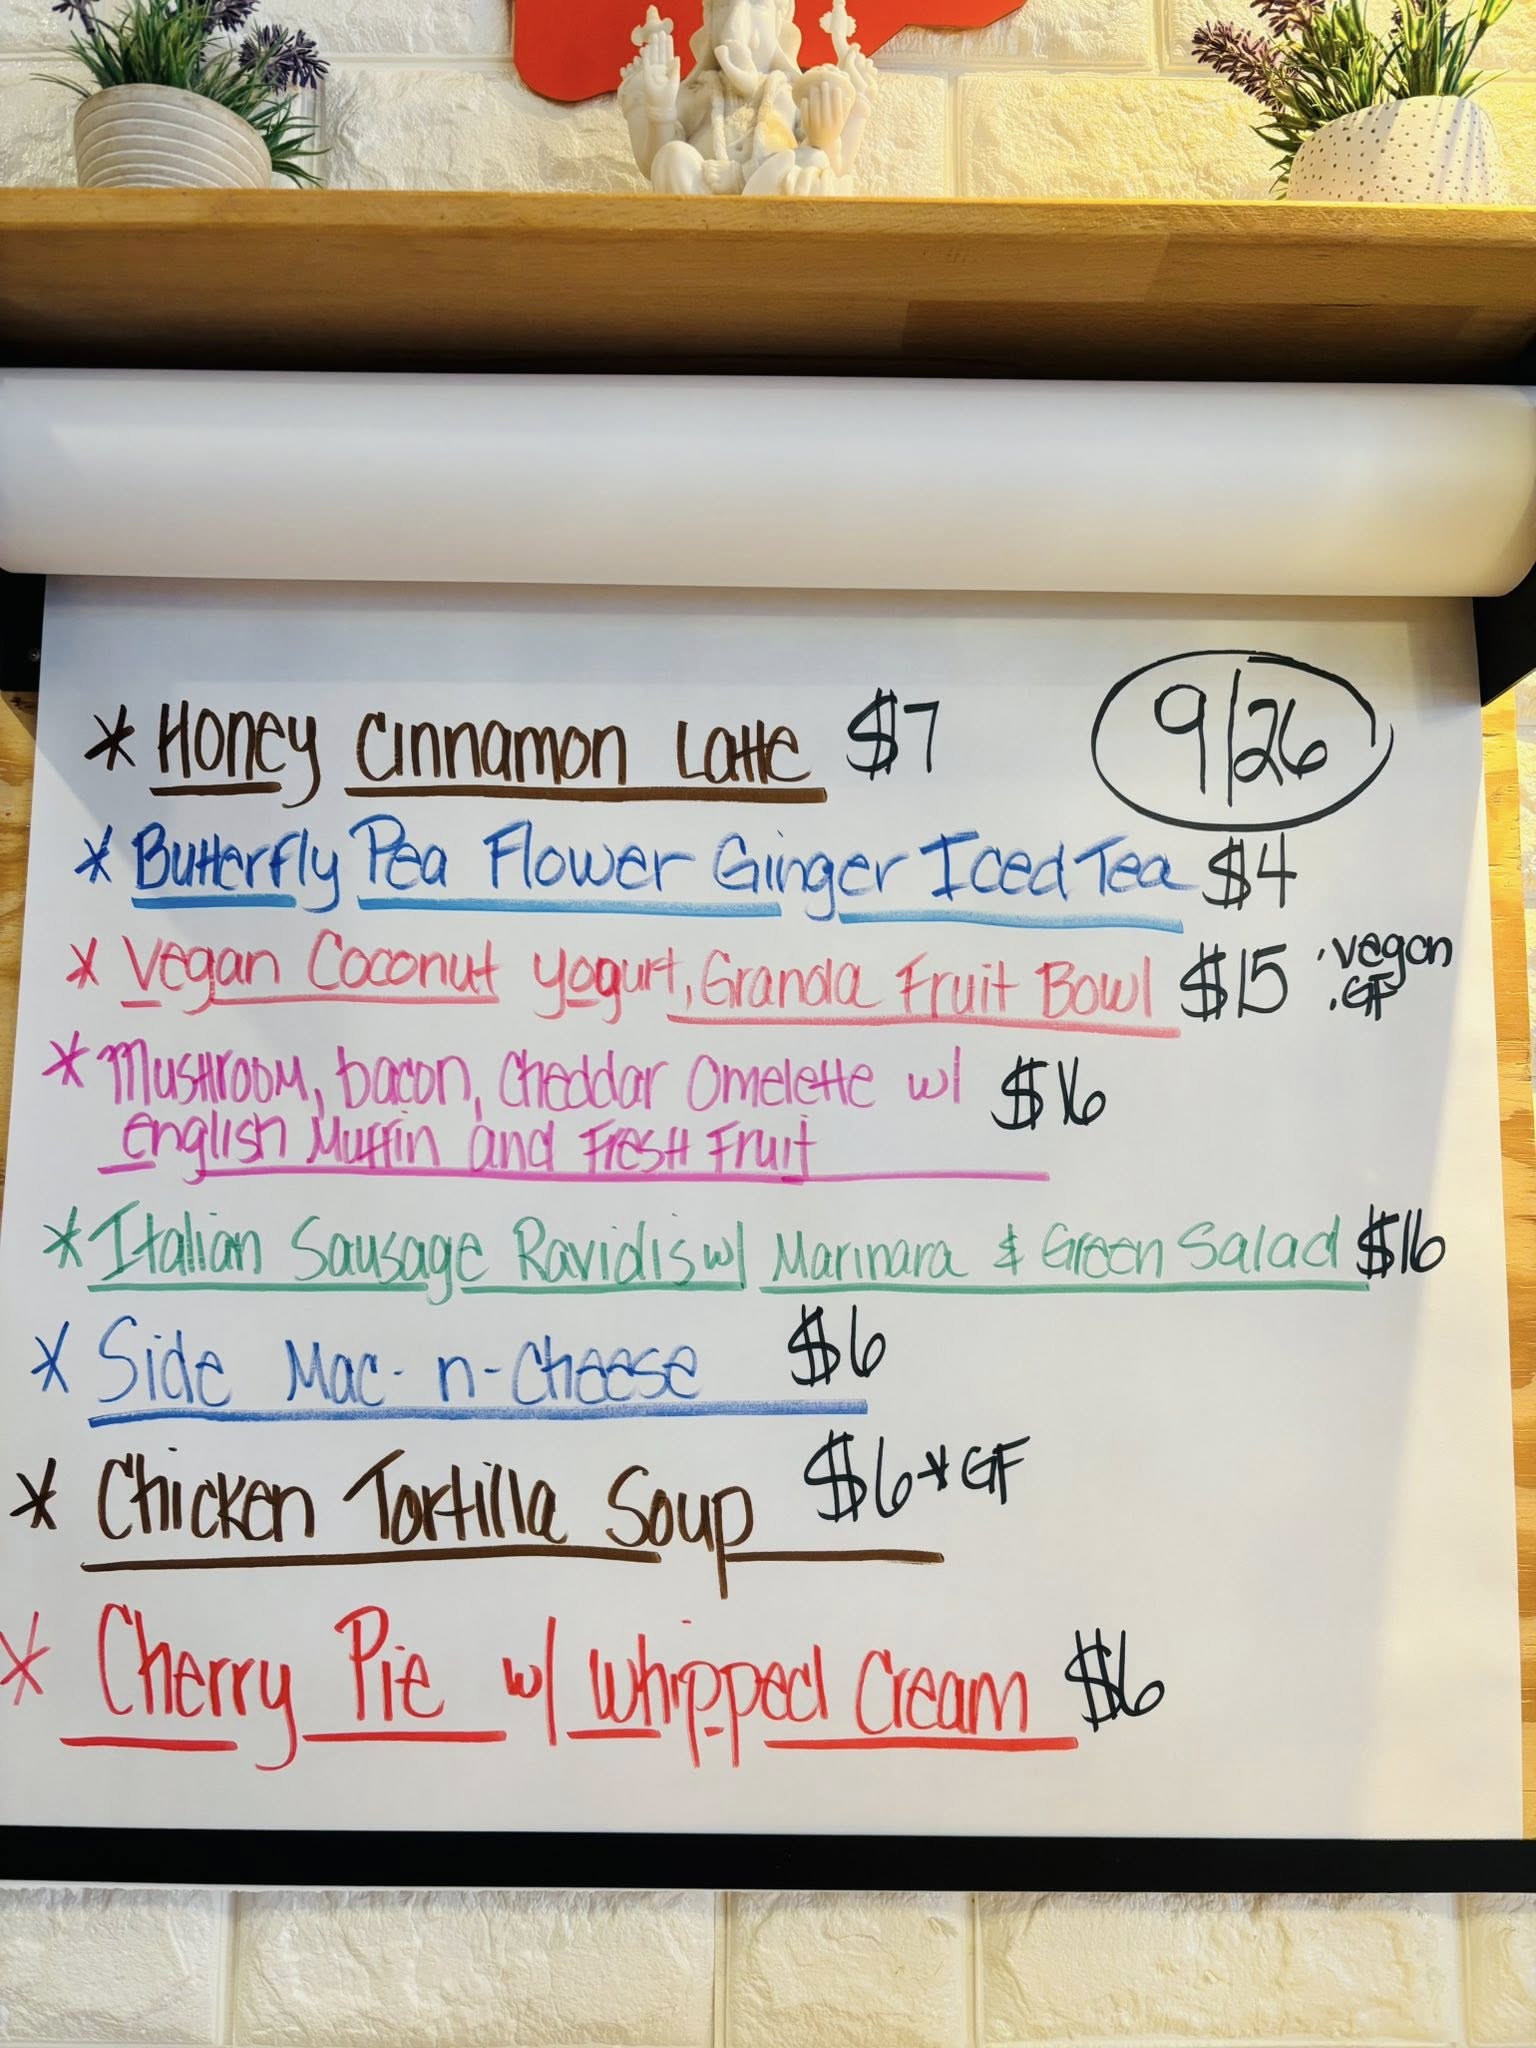 * Honey Cinnamon Latte $7 9/26
* Butterfly Pea Flower Ginger Iced Tea $4
* Vegan Coconut Yogurt, Granola Fruit Bowl $15 · Vegan
· GF
* Mushroom, bacon, Cheddar Omelette w/ $16
English Muffin and Fresh Fruit
* Italian Sausage Raviolis w/ Marinara & Green Salad $16
* Side Mac-n-Cheese $6
* Chicken Tortilla Soup $6 * GF
* Cherry Pie w/ Whipped Cream $6